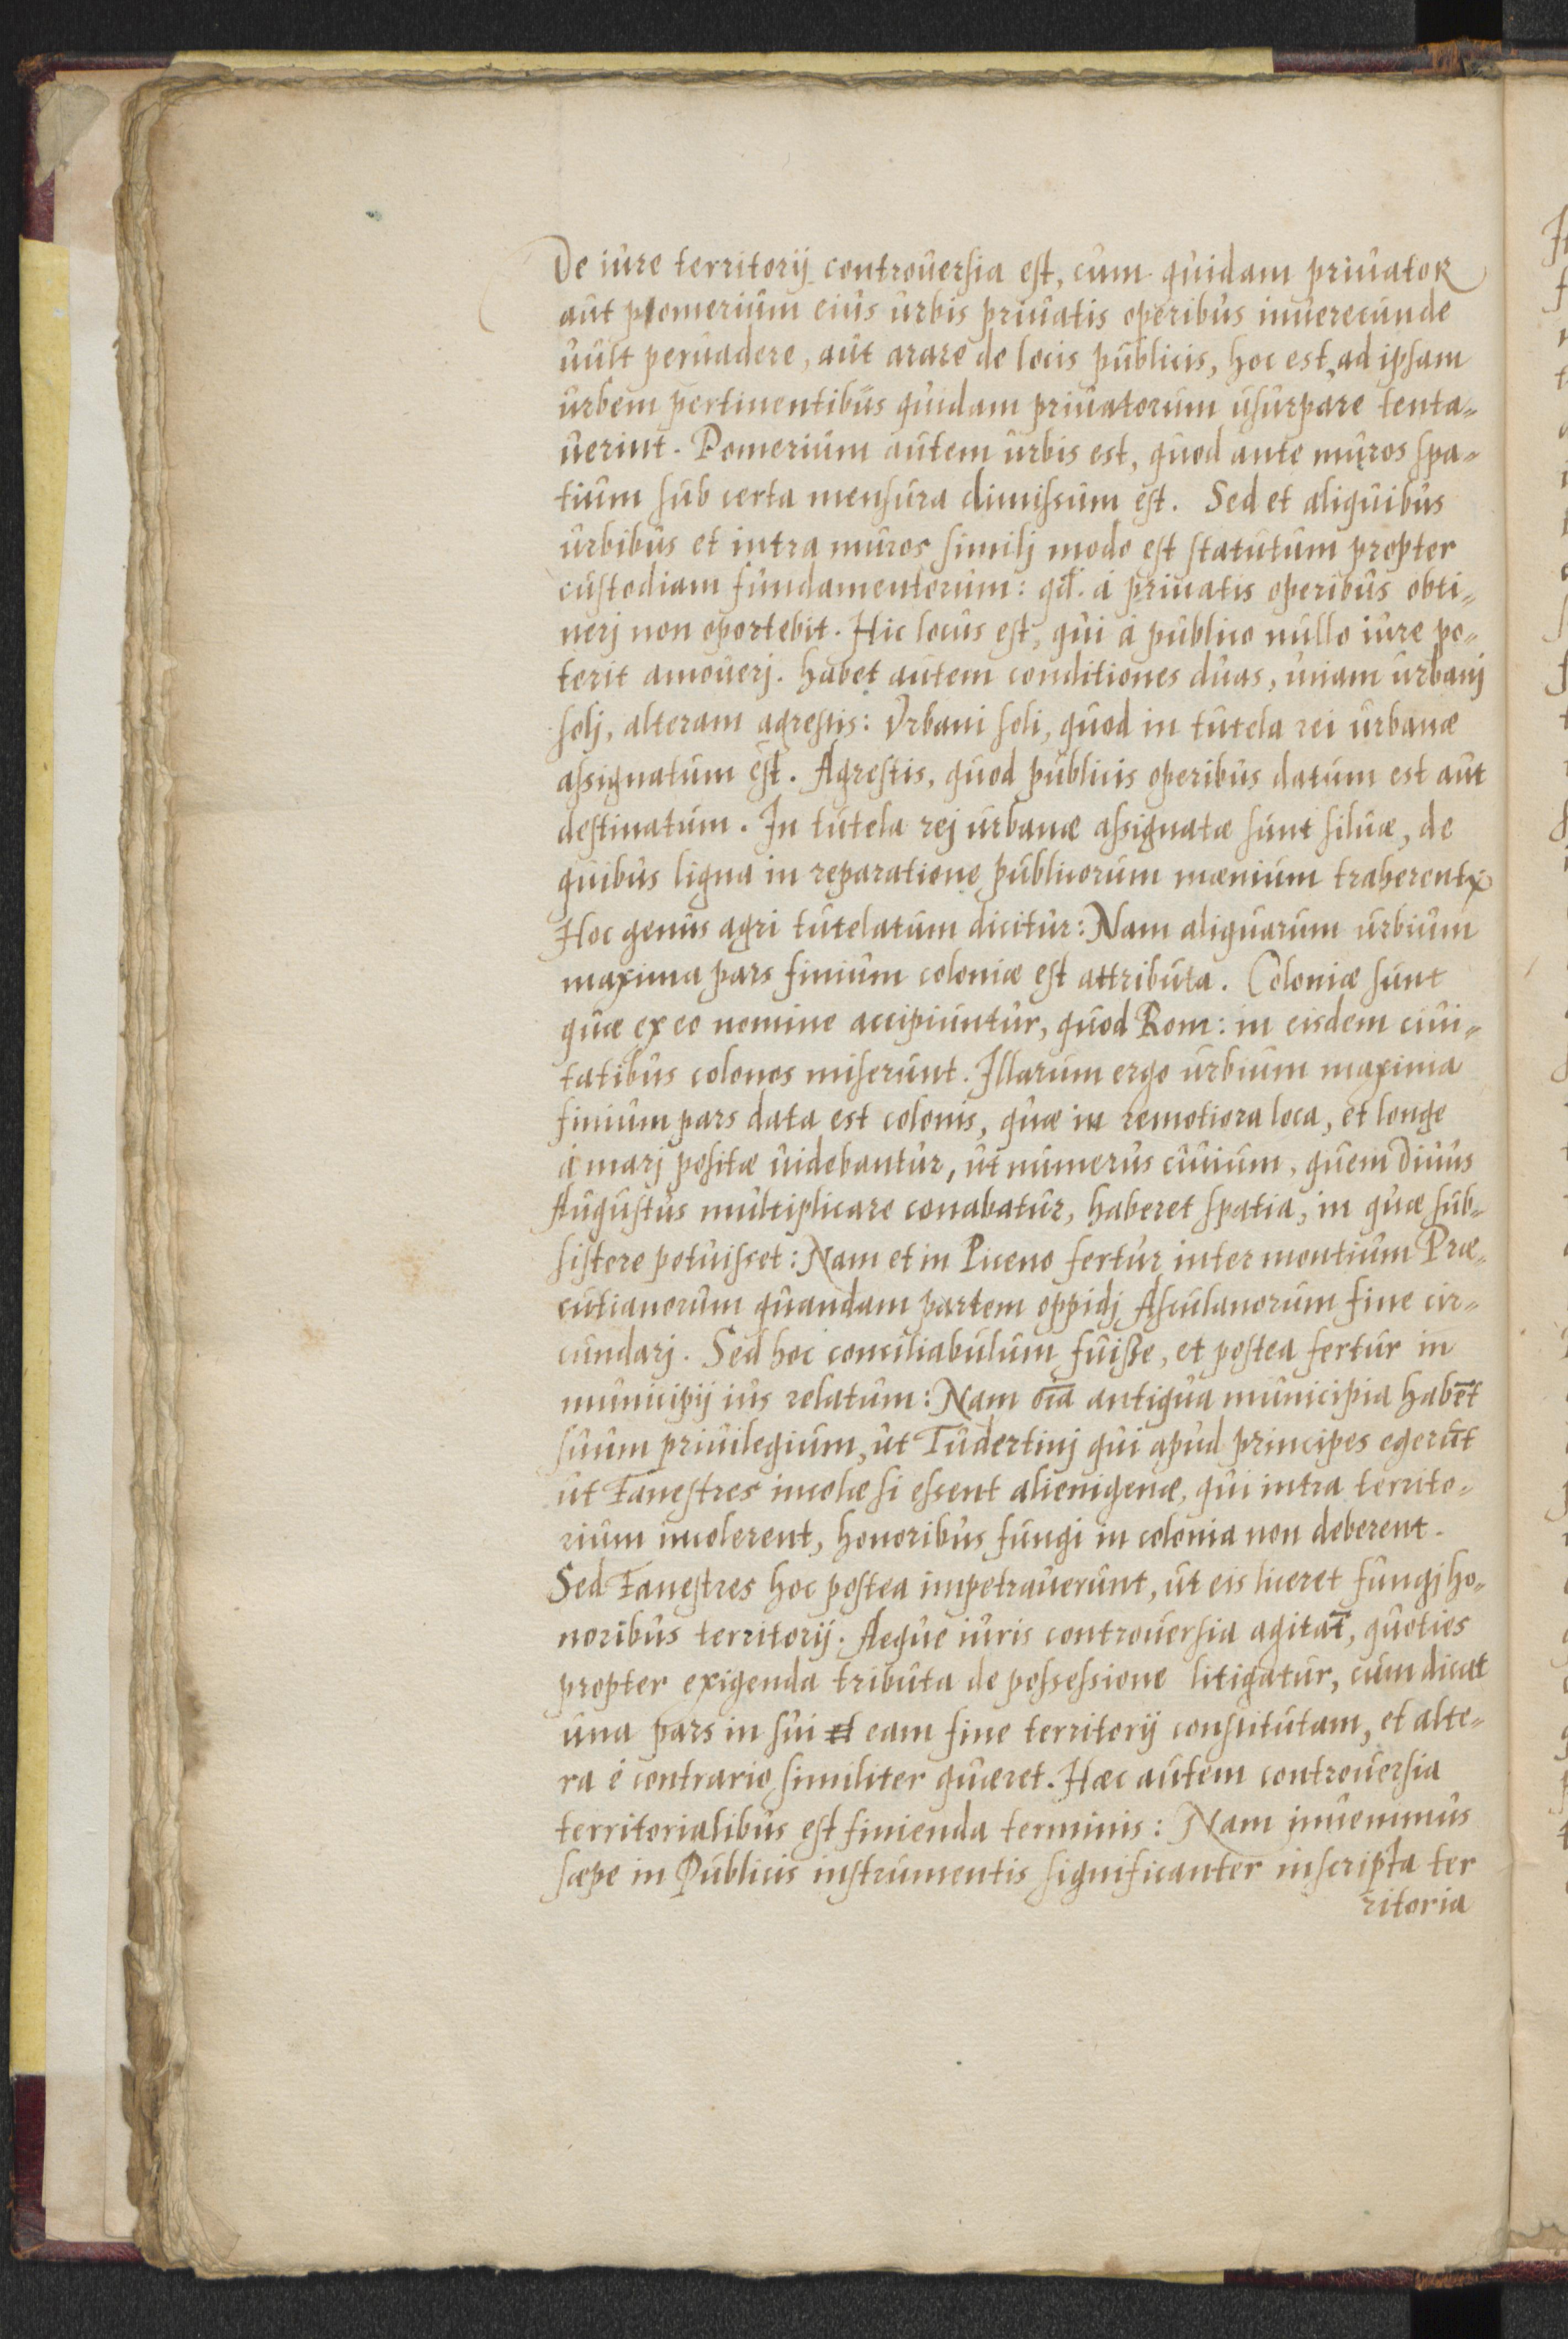 De iure territorij controuersia est, cum quidam priuatoꝝ
aut promerium eius urbis priuatis operibus inuerecunde
uult peruadere, aut arare de locis publicis, hoc est, ad ipsam
urbem pertinentibus quidam priuatorum usurpare tenta⸗
uerint. Pomerium autem urbis est, quod ante muros spa⸗
tium sub certa mensura dimissum est. Sed et aliquibus
urbibus et intra muros similj modo est statutum propter
custodiam fundamentorum: qđ. à priuatis operibus obti⸗
nerj non oportebit. Hic locus est, qui à publico nullo iure po⸗
terit amouerj. habet autem conditiones duas, unam urbanj
solj, alteram agrestis: Vrbani soli, quod in tutela rei urbanæ
assignatum est. Agrestis, quod publicis operibus datum est aut
destinatum. In tutela rej urbanæ assignatæ sunt siluæ, de
quibus ligna in reparatione publicorum mœnium traherentꝝ
Hoc genus agri tutelatum dicitur: Nam aliquarum urbium
maxima pars finium coloniæ est attributa. Coloniæ sunt
quæ ex eo nomine accipiuntur, quod Rom: in eisdem ciui⸗
tatibus colonos miserunt. Illarum ergo urbium maxima
finium pars data est colonis, quæ in remotiora loca, et longe
à marj positæ uidebantur, ut numerus ciuium, quem Diuus
Augustus multiplicare conabatur, haberet spatia, in quæ sub⸗
sistere potuisset: Nam et in Piceno fertur inter montium Præ⸗
cutianorum quandam partem oppidj Asculanorum fine cir⸗
cundarj. Sed hoc conciliabulum fuiße, et postea fertur in
municipij ius relatum: Nam oīa antiqua municipia habēt
suum priuilegium, ut Tudertinj qui apud principes egerūt
ut Fanestres incolæ si essent alienigenæ, qui intra territo⸗
rium incolerent, honoribus fungi in colonia non deberent.
Sed Fanestres hoc postea impetrauerunt, ut eis liceret fungj ho⸗
noribus territorij. Aeque iuris controuersia agitat̄, quoties
propter exigenda tributa de possessione litigatur, cum dicat
una pars in sui et eam fine territorij constitutam, et alte⸗
ra è contrario similiter quæret. Hæc autem controuersia
territorialibus est finienda terminis: Nam inuenimus
sæpe in Publicis instrumentis significanter inscripta ter
ritoria